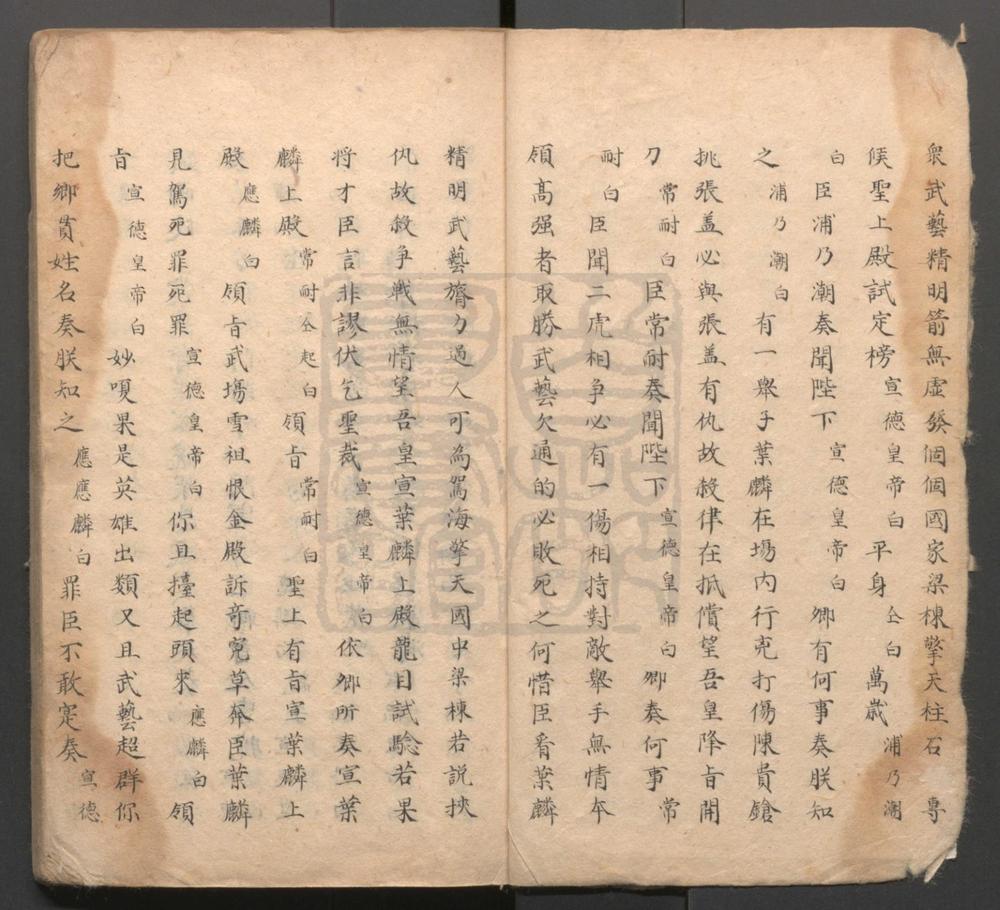 衆武藝精明箭無虛發個個國家梁棟擎天柱石 專
候聖上殿試定榜 宣德皇帝白 平身 仝白 萬歲 浦乃潮
白 臣浦乃潮奏聞陛下 宣德皇帝白 卿有何事奏朕知
之 浦乃潮白 有一舉子葉麟在塲內行兇打傷陳貴鎗
挑張盖必與張盖有仇故殺律在抵償望吾皇降旨開
刀 常耐白 臣常耐奏聞陛下 宣德皇帝白 卿奏何事 常
耐白 臣聞二虎相争必有一傷相持對敵舉手無情本
領髙强者取勝武藝欠通的必敗死之何惜臣看葉麟
精明武藝膂力過人可為駕海擎天國中梁棟若説挾
仇故殺争戦無情望吾皇宣葉麟上殿龍目試驗若果
将才臣言非謬伏乞聖裁 宣德皇帝白 依卿所奏宣葉
麟上殿 常耐仝起白 領旨 常耐白 聖上有旨宣葉麟上
殿 應麟白 領旨武塲雪祖恨金殿訴奇寃草莽臣葉麟
見駕死罪死罪 宣德皇帝白 你且擡起頭來 應麟白 領
旨 宣德皇帝白 妙嗄果是英雄出類又且武藝超群你
把鄉貫姓名奏朕知之 應應麟白 罪臣不敢寔奏 宣德